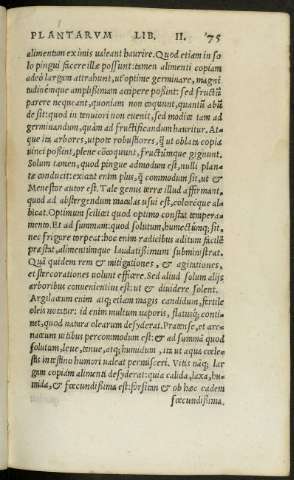 PLANTARVM LIB. II. 75
alimentum ex imis ualeant haurire. Quod etiam in so
lo pingui facere illæ possunt: tamen alimenti copiam
adeò largam attrahunt, ut optime germinare, magni
tudinémque amplissimam accipere possint: sed fructũ
parere nequeant, quoniam non cõquunt, quantũ abũ
de sit: quod in tenuiori non euenit, sed modicè tam ad
germinandum, quàm ad fructificandum hauritur. At-
que ita arbores, utpote robustiores, q̃ ut oblata copia
uinci possint, plene cõcoquunt, fructúmque gignunt.
Solum tamen, quod pingue admodum est, nulli plan-
tæ conducit: exiccat enim plus, q̃ commodum sit, ut &
Menestor autor est. Tale genus terræ illud affirmant,
quod ad abstergendum maculas usui est, coloréque al-
bicat. Optimum scilicet quod optimo constat tempera-
mento. Et ad summam: quod solutum, humectúmq; sit,
nec frigore torpeat: hoc enim radicibus aditum facilẽ
præstat, alimentúmque laudatissimum subministrat.
Quã quidem rem & mitigationes, & agitationes,
et stercorationes uolunt efficere. Sed aliud solum alijs
arboribus conuenientius est: ut & diuidere solent.
Argillaceum enim atq; etiam magis candidum, fertile
oleis uocatur: id enim multum uaporis, flatusq́; conti-
net, quod natura olearum desyderat. Pratense, et are-
naceum uitibus percommodum est: & ad summã quod
solutum, leue, tenue, atq; humidum, ita ut aqua cœle-
stis intestino humori ualeat permisceri. Vitis náq; lar
gam copiam alimenti desyderat: quia calida, laxa, hu-
mida, & fœcundissima est: forsitan & ob hæc eadem
fœcundissima.